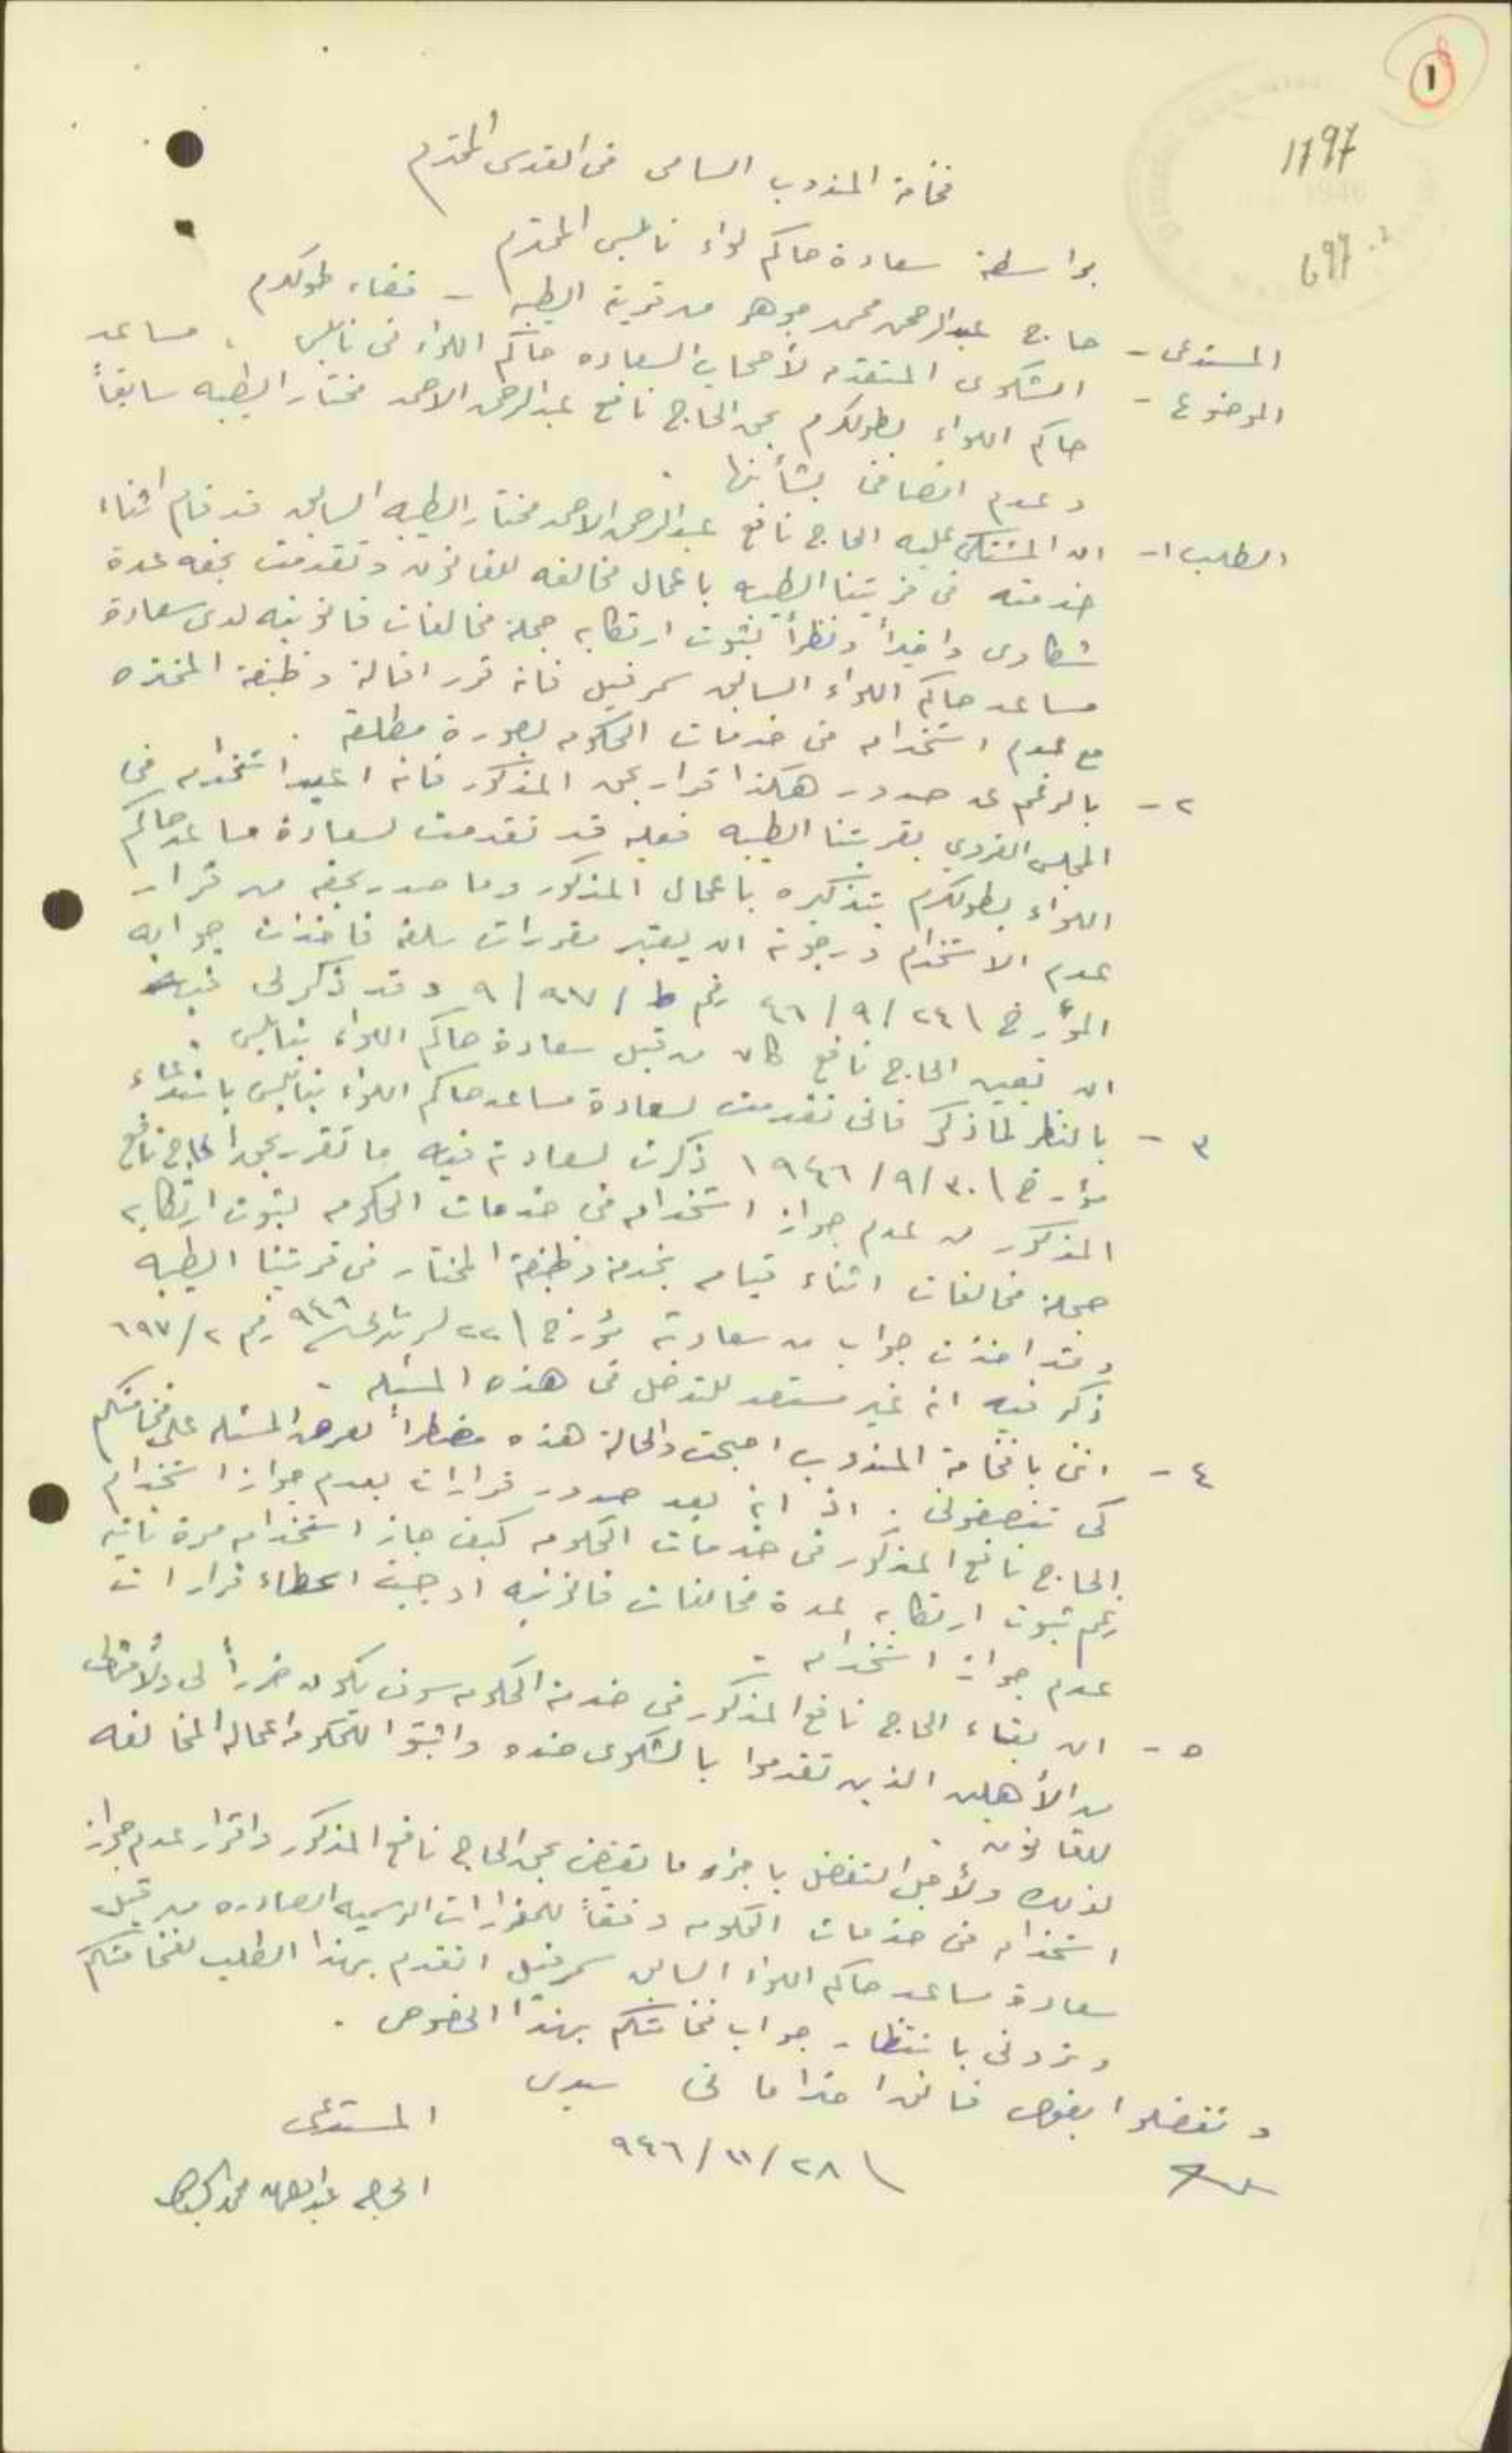 ١
1797
697
فخامة المندوب السامي في القدس المحترم
بواسطة سعادة حاكم لواء نابلس المحترم
المستدعي - حاج عبدالرحمن محمد جوهر من قرية الطيبه - قضاء طولكرم
الموضوع - الشكوى المتقدمه لأصحاب السعاده حاكم اللواء في نابلس ، مساعد
حاكم اللواء بطولكرم بحق الحاج نافع عبدالرحمن الاحمد مختار الطيبه سابقاً
وعدم انصافي بشأنها .
الطلب ١- ان المشتكى عليه الحاج نافع عبدالرحمن الاحمد مختار الطيبه السابق قد قام اثناء
خدمته في قريتنا الطيبه باعمال مخالفه للقانون وتقدمت بحقه عدة
شكاوى واخيراً ونظراً لثبوت ارتكابه جملة مخالفات قانونيه لدى سعادة
مساعد حاكم اللواء السابق سمرفيل فانه قرر اقالة وظيفة المختره
مع عدم استخدامه في خدمات الحكومه بصورة مطلقه .
٢ - بالرغم عن صدور هكذا قرار بحق المذكور فانه اعيد استخدامه في
المجلس القروي بقريتنا الطيبه فعليه قد تقدمت لسعادة مساعد حاكم
اللواء بطولكرم بتذكيره باعمال المذكور وما صدر بحقه من قرار
عدم الاستخدام ورجوته ان يعتبر مقررات سلفه فاخذت جوابه
المؤرخ \ ٢٤ / ٩ / ٤٦ رقم ط / ٩٧ / ٩ وقد ذكر لي فيه
ان تعيين الحاج نافع كان من قبل سعادة حاكم اللواء بنابلس .
٣ - بالنظر لما ذكر فاني تقدمت لسعادة مساعد حاكم اللواء بنابلس باستدعاء
مؤرخ \ ٣٠ / ٩ / ١٩٤٦ ذكرت لسعادته فيه ما تقرر بحق الحاج نافع
المذكور من عدم جواز استخدامه في خدمات الحكومه لثبوت ارتكابه
جملة مخالفات اثناء قيامه بخدمة وظيفة المختار في قريتنا الطيبه
وقد اخذت جواب من سعادته مؤرخ \ ٢٢ ٩٤٦ رقم ٢ / ٦٩٧
ذكر فيه انه غير مستعد للتدخل في هذه المسئله .
٤ - انني يا فخامة المندوب اصبحت والحالة هذه مضطراً لعرض المسئله على فخامتكم
كي تنصفوني . اذ انه بعد صدور قرارات بعدم جواز استخدام
الحاج نافع المذكور في خدمات الحكومه كيف جاز استخدامه مرة ثانيه
رغم ثبوت ارتكابه لعدة مخالفات قانونيه اوجبت اعطاء قرارات
عدم جواز استخدامه .
٥ - ان بقاء الحاج نافع المذكور في خدمة الحكومه سوف يكون ضرراً لي ولأمثالي
من الأهلين الذين تقدموا بالشكوى ضده واثبتوا للحكومه اعماله المخالفه
للقانون .
لذلك ولأجل التفضل باجراء ما يقتضى بحق الحاج نافع المذكور واقرار عدم جواز
استخدامه في خدمات الحكومه وفقاً للمقرارات الرسميه الصادره من قبل
سعادة مساعد حاكم اللواء السابق سمرفيل اتقدم بهذا الطلب لفخامتكم
وتروني بانتظار جواب فخامتكم بهذا الخصوص .
وتفضلوا بقبول فائق احتراماتي سيدي
\ ٢٨ / ١١ / ٩٤٦
المستدعي
الحاج عبدالرحمن محمد الجوهر